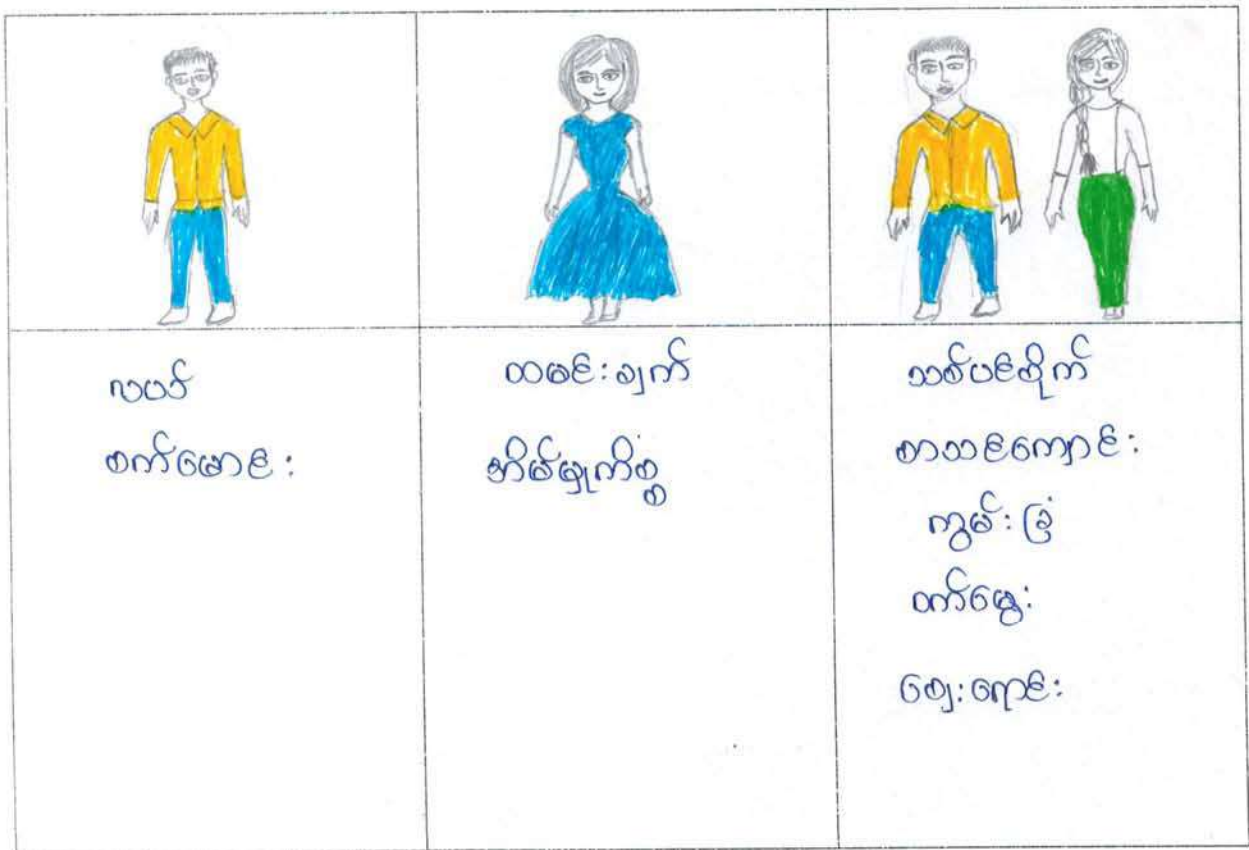 လပဒ်
စက်မောင်း
ထမင်းချက်
အိမ်မှုကိစ္စ
သစ်ပင်စိုက်
စာသင်ကျောင်း
ကွမ်းခြံ
ဝက်မွေး
ဈေးရောင်း